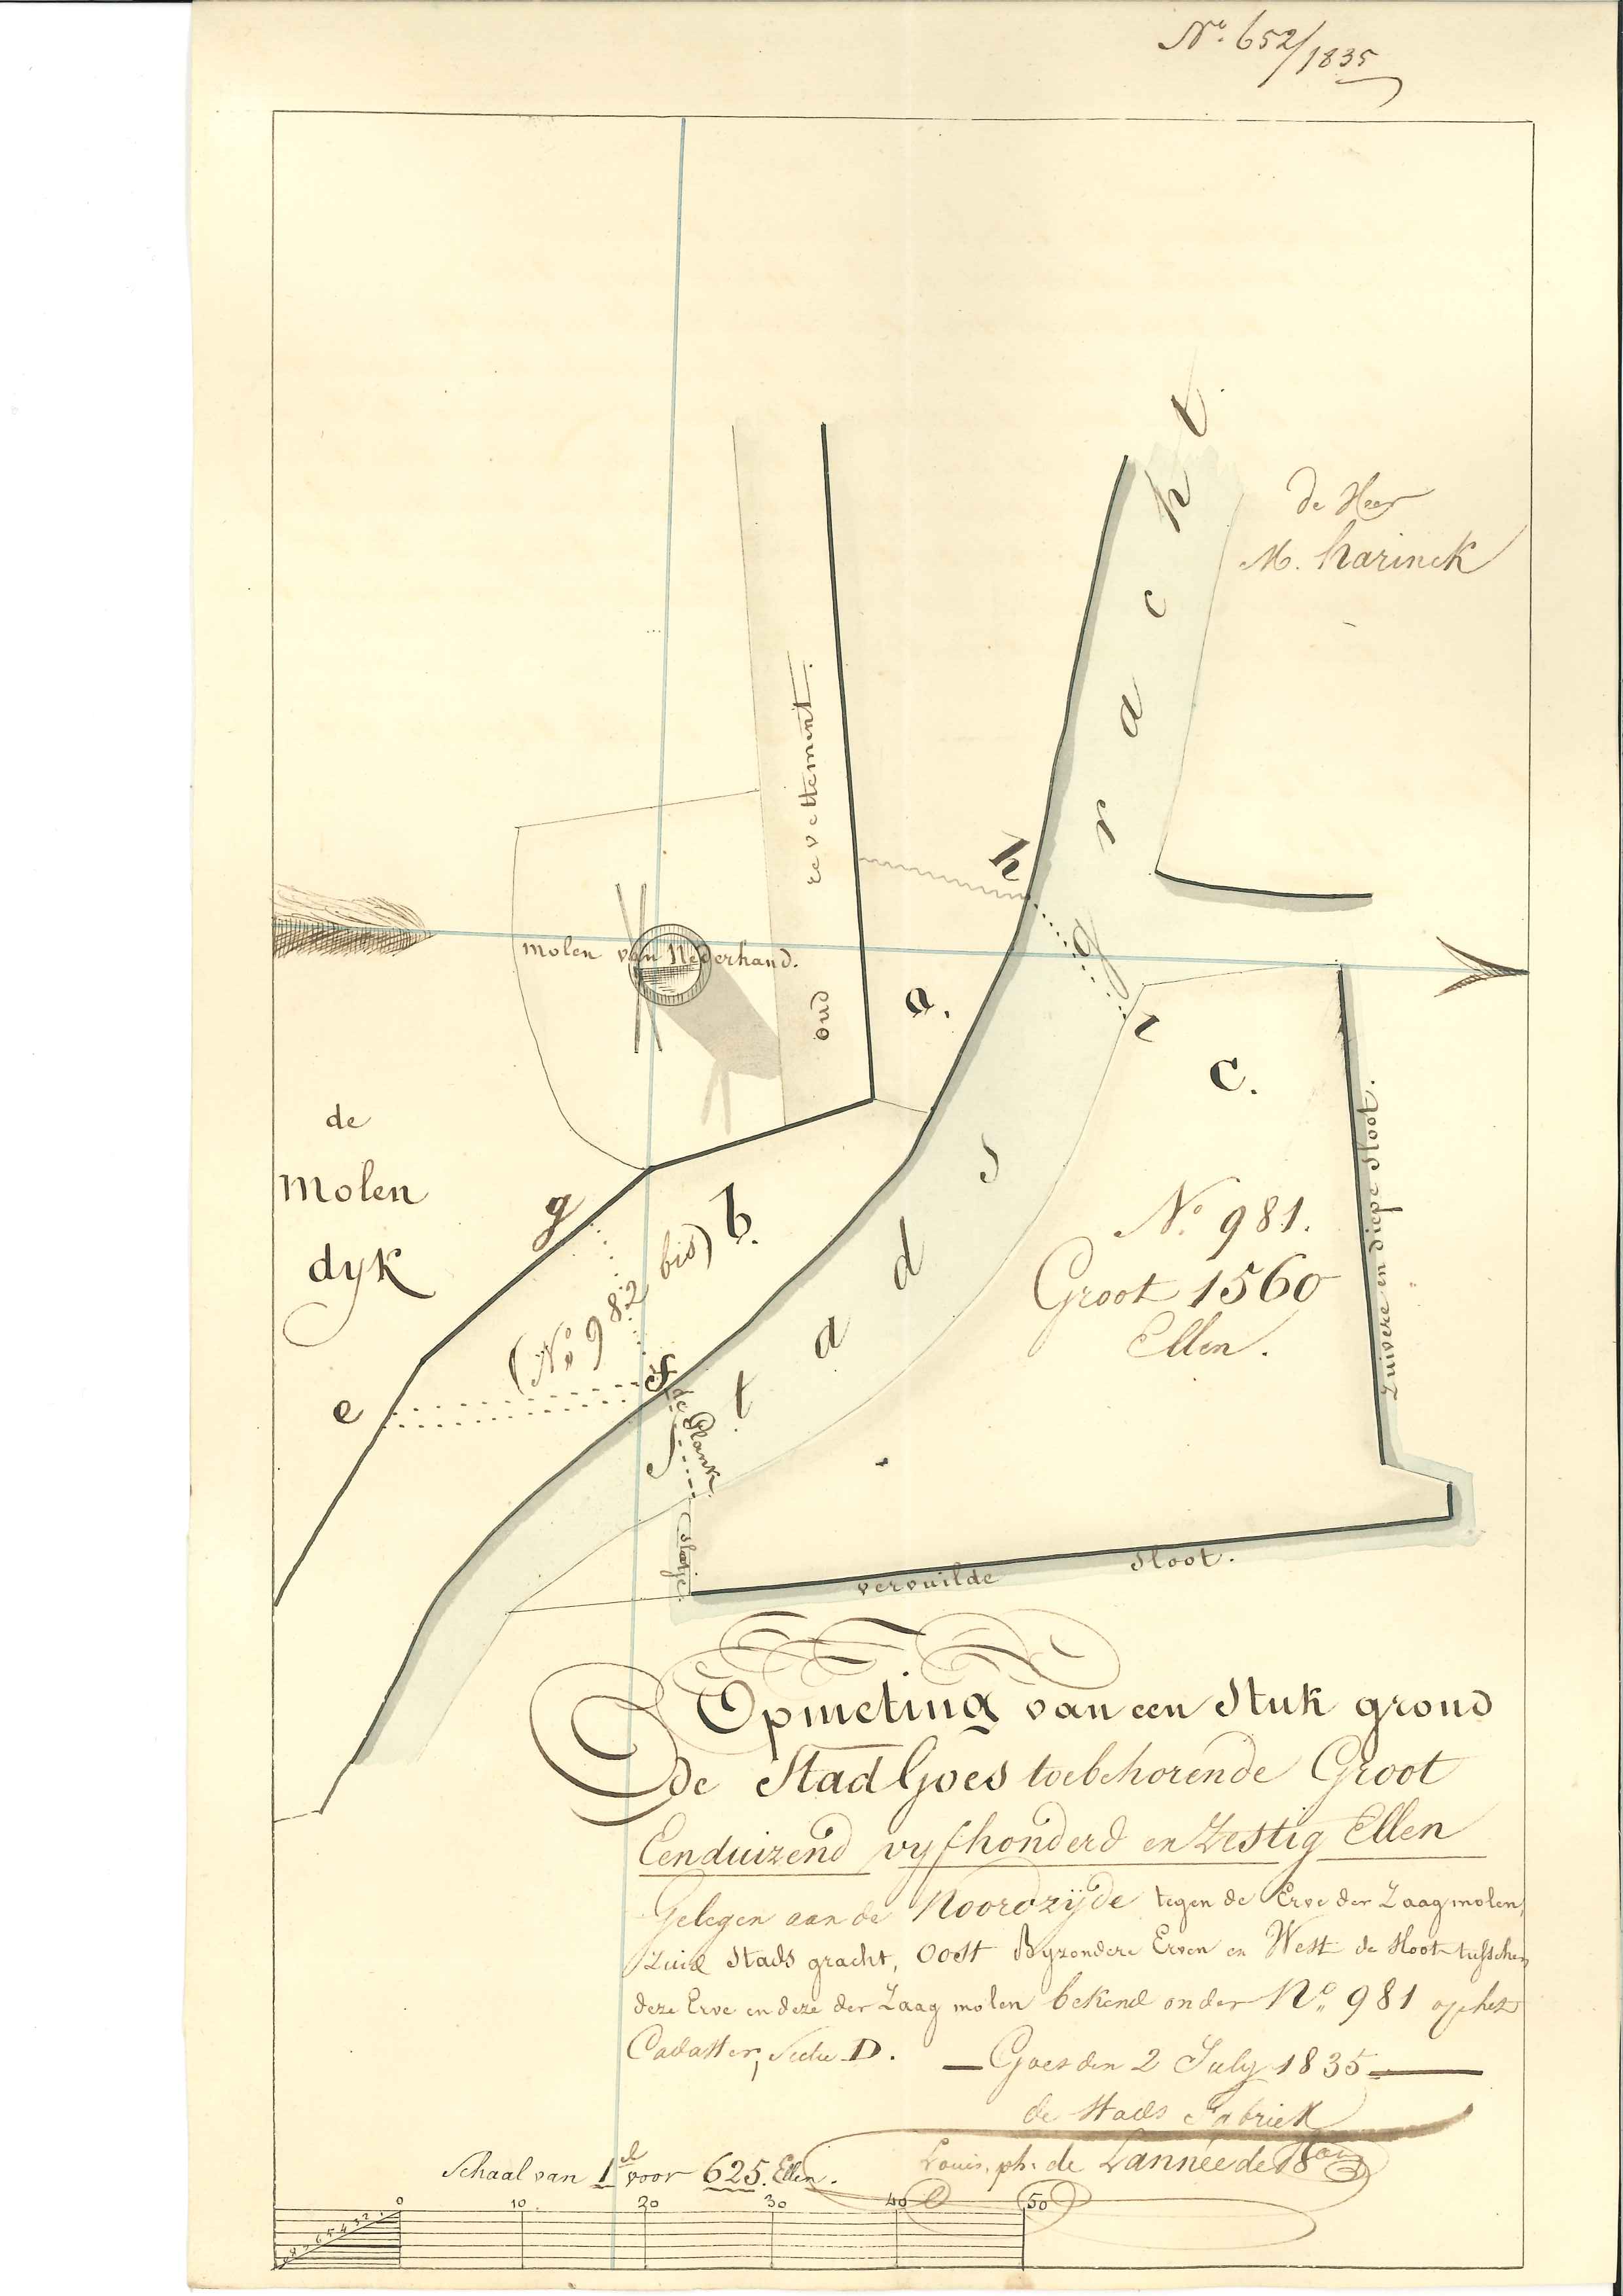 No. 652/1835
de Heer
M. Harinck
Stads gracht
oud revettement.
molen van Nederhand.
h
a.
i
c.
de
molen
dyk
g
b.
(No 982 bis)
e
f
de Plank.
No. 981.
Groot 1560
Ellen.
Zuivere en diepe Sloot.
vervuilde Sloot.
Opmeting van een Stuk grond
de Stad Goes toebehorende Groot
Eenduizend vyfhonderd en Zestig Ellen
Gelegen aan de Noordzijde tegen de Erve der Zaagmolen,
Zuid Stads gracht, Oost Byzondere Erven en West de Sloot tusschen
deze Erve en deze der Zaag molen bekend onder No. 981 op het
Cadaster, Sectie D. — Goes den 2 July 1835 —
de Stads Fabriek
Louis. ph. de Lannée de
Schaal van 1 el voor 625. Ellen.
0 10 20 30 40 50